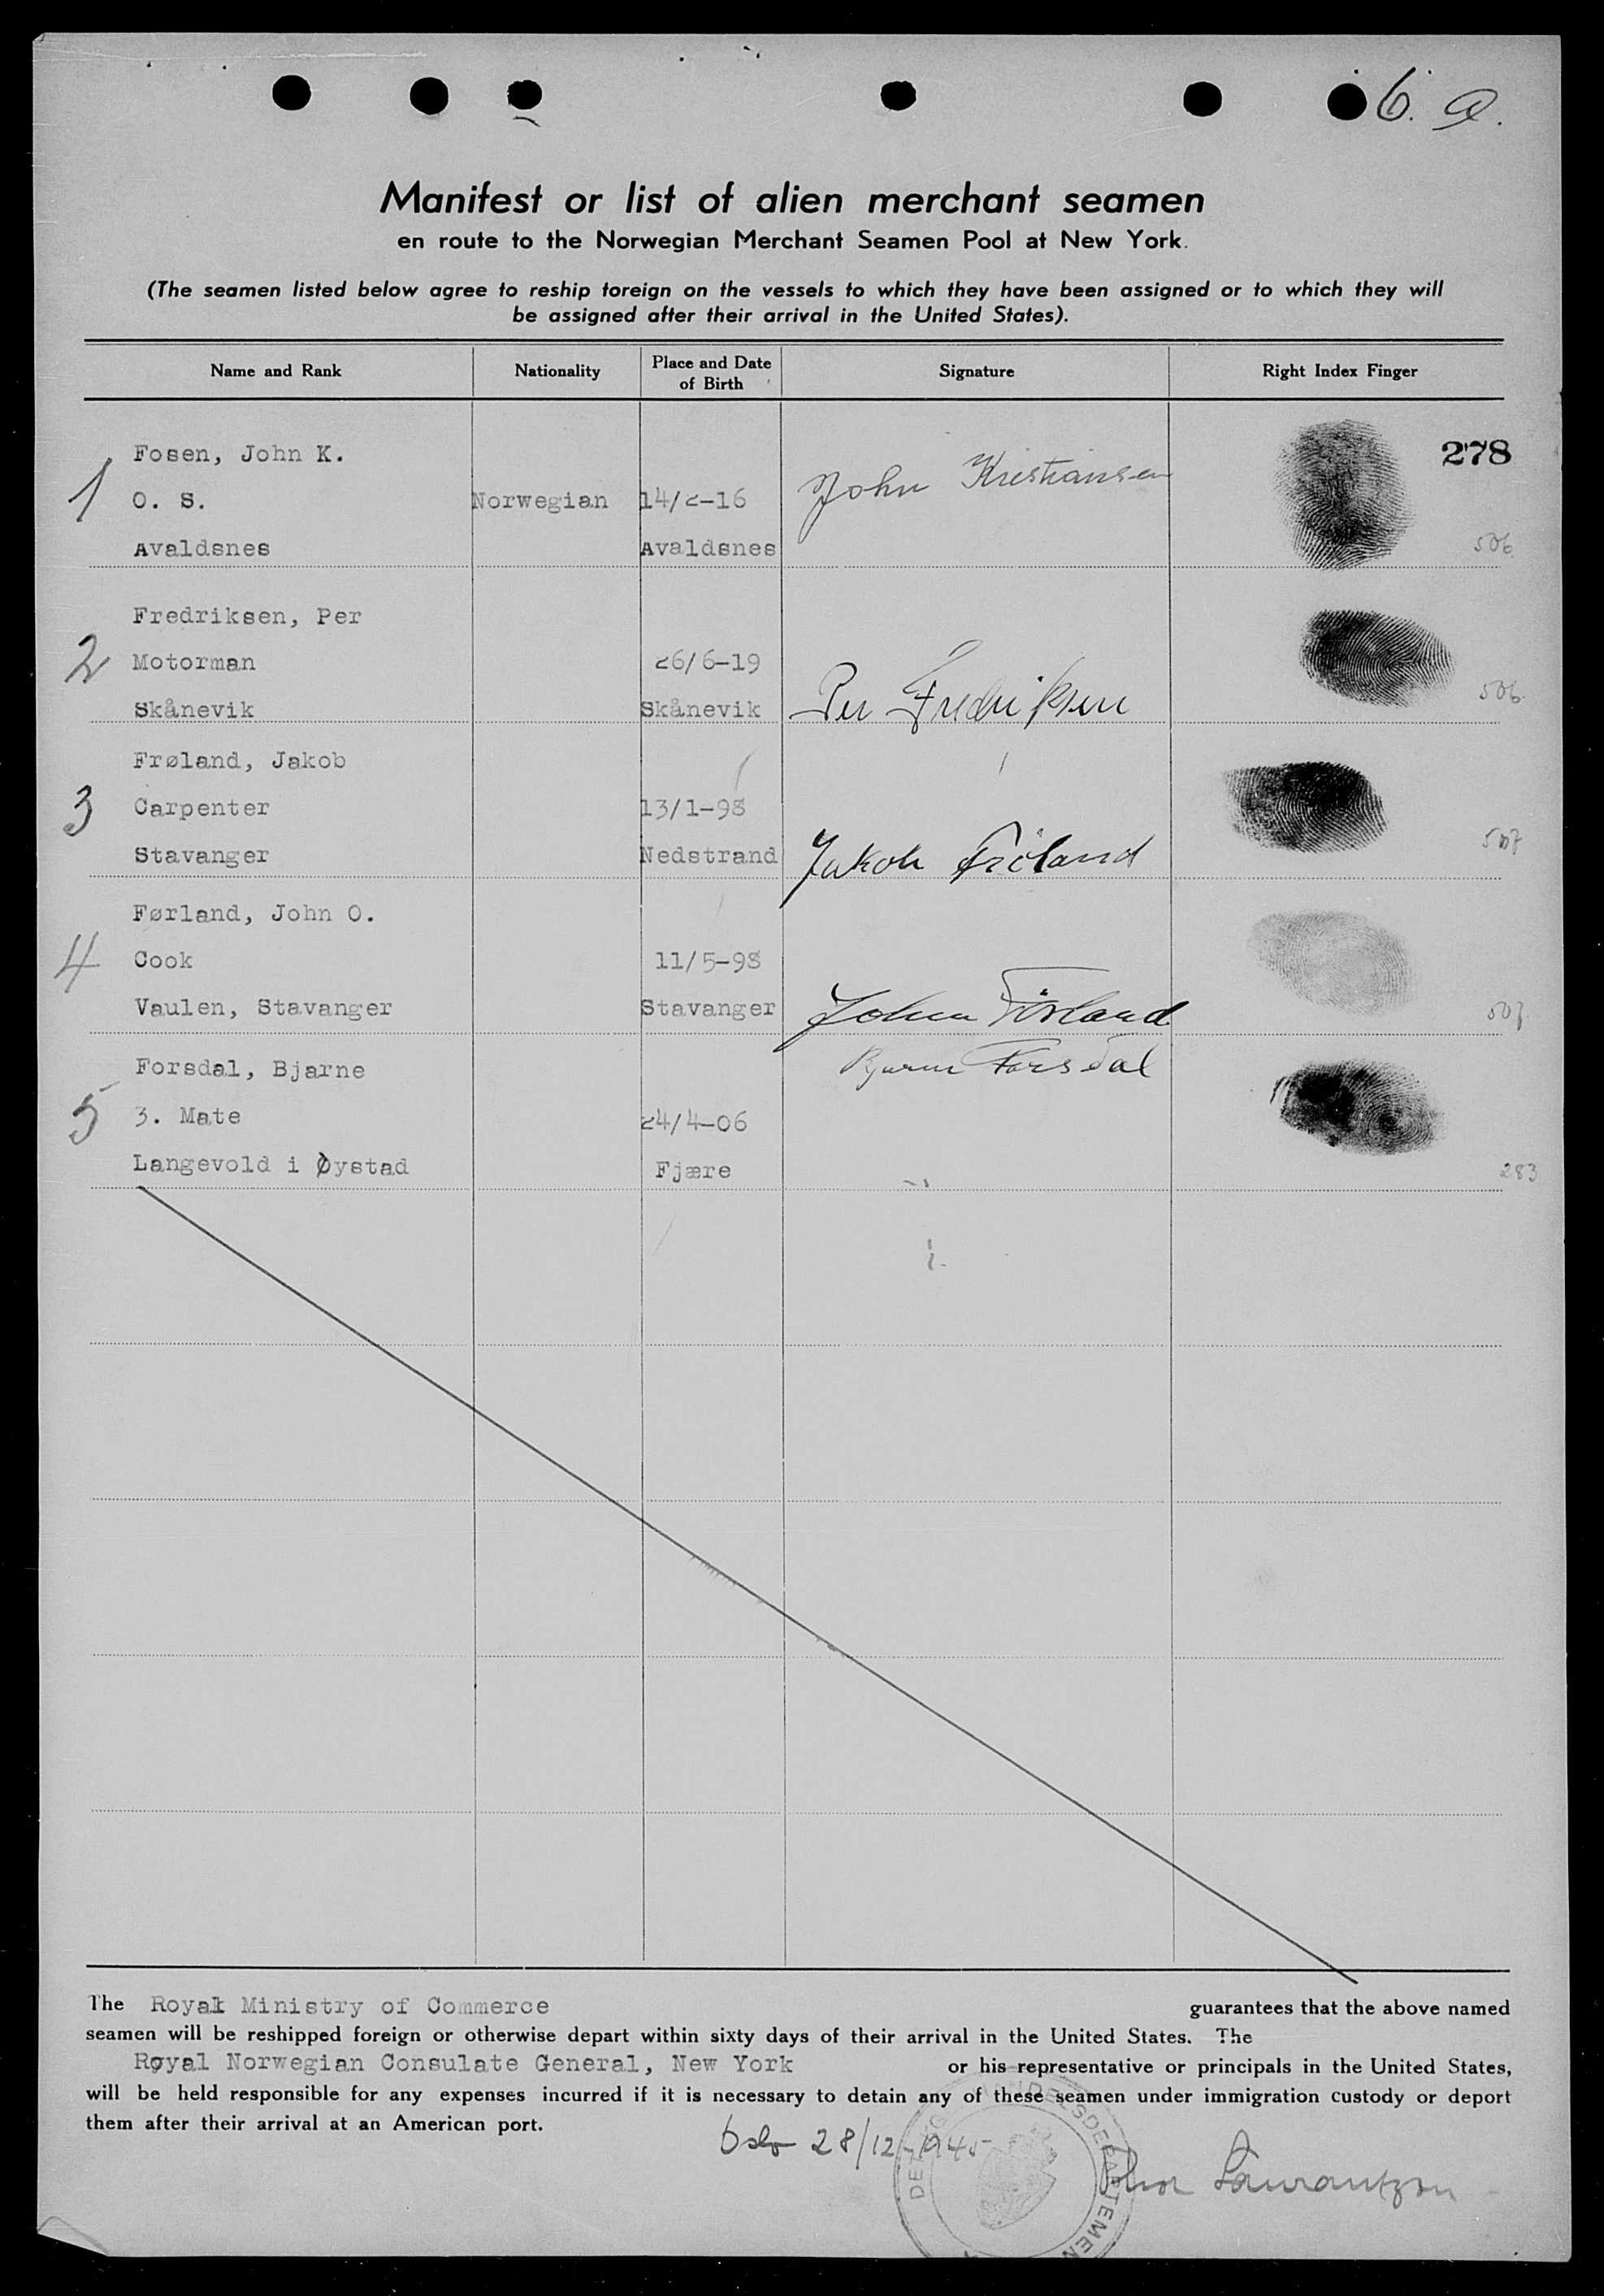 6. a.
Manifest or list of alien merchant seamen
en route to the Norwegian Merchant Seamen Pool at New York.
(The seamen listed below agree to reship foreign on the vessels to which they have been assigned or to which they will
be assigned after their arrival in the United States).
Name and Rank Nationality Place and Date of Birth Signature Right Index Finger
278
1 Fosen, John K.
O. S. Norwegian 14/2-16 John Kristiansen
Avaldsnes Avaldsnes 506
Fredriksen, Per
2 Motorman 26/6-19
Skånevik Skånevik Per Fredriksen 506
Frøland, Jakob
3 Carpenter 13/1-98
Stavanger Nedstrand Jakob Fröland 507
Førland, John O.
4 Cook 11/5-98
Vaulen, Stavanger Stavanger John Förland 507
Forsdal, Bjarne Bjarne Forsdal
5 3. Mate 24/4-06
Langevold i Øystad Fjære 283
The Royal Ministry of Commerce guarantees that the above named
seamen will be reshipped foreign or otherwise depart within sixty days of their arrival in the United States. The
Royal Norwegian Consulate General, New York or his representative or principals in the United States,
will be held responsible for any expenses incurred if it is necessary to detain any of these seamen under immigration custody or deport
them after their arrival at an American port.
Oslo 28/12-1945